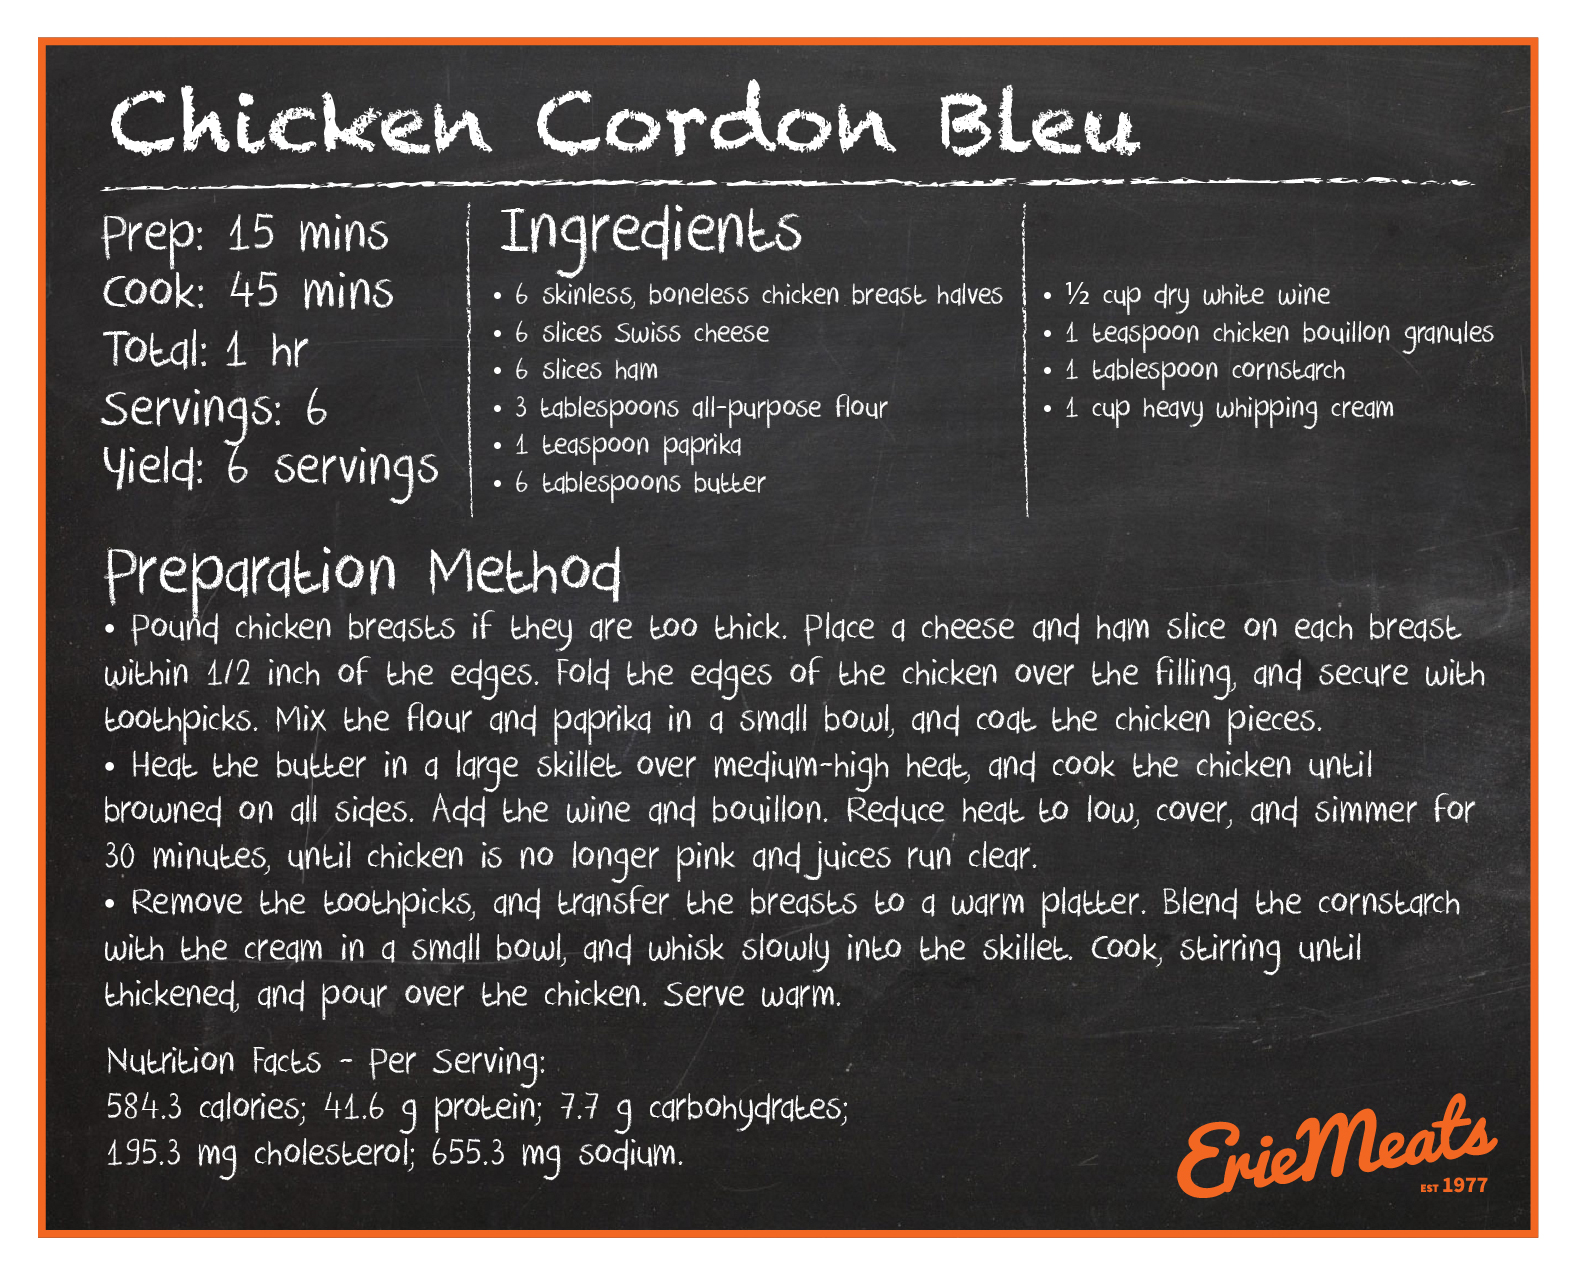 Chicken Cordon Bleu
Prep: 15 mins
Cook: 45 mins
Total: 1 hr
Servings: 6
Yield: 6 servings
Ingredients
• 6 skinless, boneless chicken breast halves
• 6 slices Swiss cheese
• 6 slices ham
• 3 tablespoons all-purpose flour
• 1 teaspoon paprika
• 6 tablespoons butter
• ½ cup dry white wine
• 1 teaspoon chicken bouillon granules
• 1 tablespoon cornstarch
• 1 cup heavy whipping cream
Preparation Method
• Pound chicken breasts if they are too thick. Place a cheese and ham slice on each breast
within 1/2 inch of the edges. Fold the edges of the chicken over the filling, and secure with
toothpicks. Mix the flour and paprika in a small bowl, and coat the chicken pieces.
• Heat the butter in a large skillet over medium-high heat, and cook the chicken until
browned on all sides. Add the wine and bouillon. Reduce heat to low, cover, and simmer for
30 minutes, until chicken is no longer pink and juices run clear.
• Remove the toothpicks, and transfer the breasts to a warm platter. Blend the cornstarch
with the cream in a small bowl, and whisk slowly into the skillet. Cook, stirring until
thickened, and pour over the chicken. Serve warm.
Nutrition Facts - Per Serving:
584.3 calories; 41.6 g protein; 7.7 g carbohydrates;
195.3 mg cholesterol; 655.3 mg sodium.
ErieMeats
EST 1977